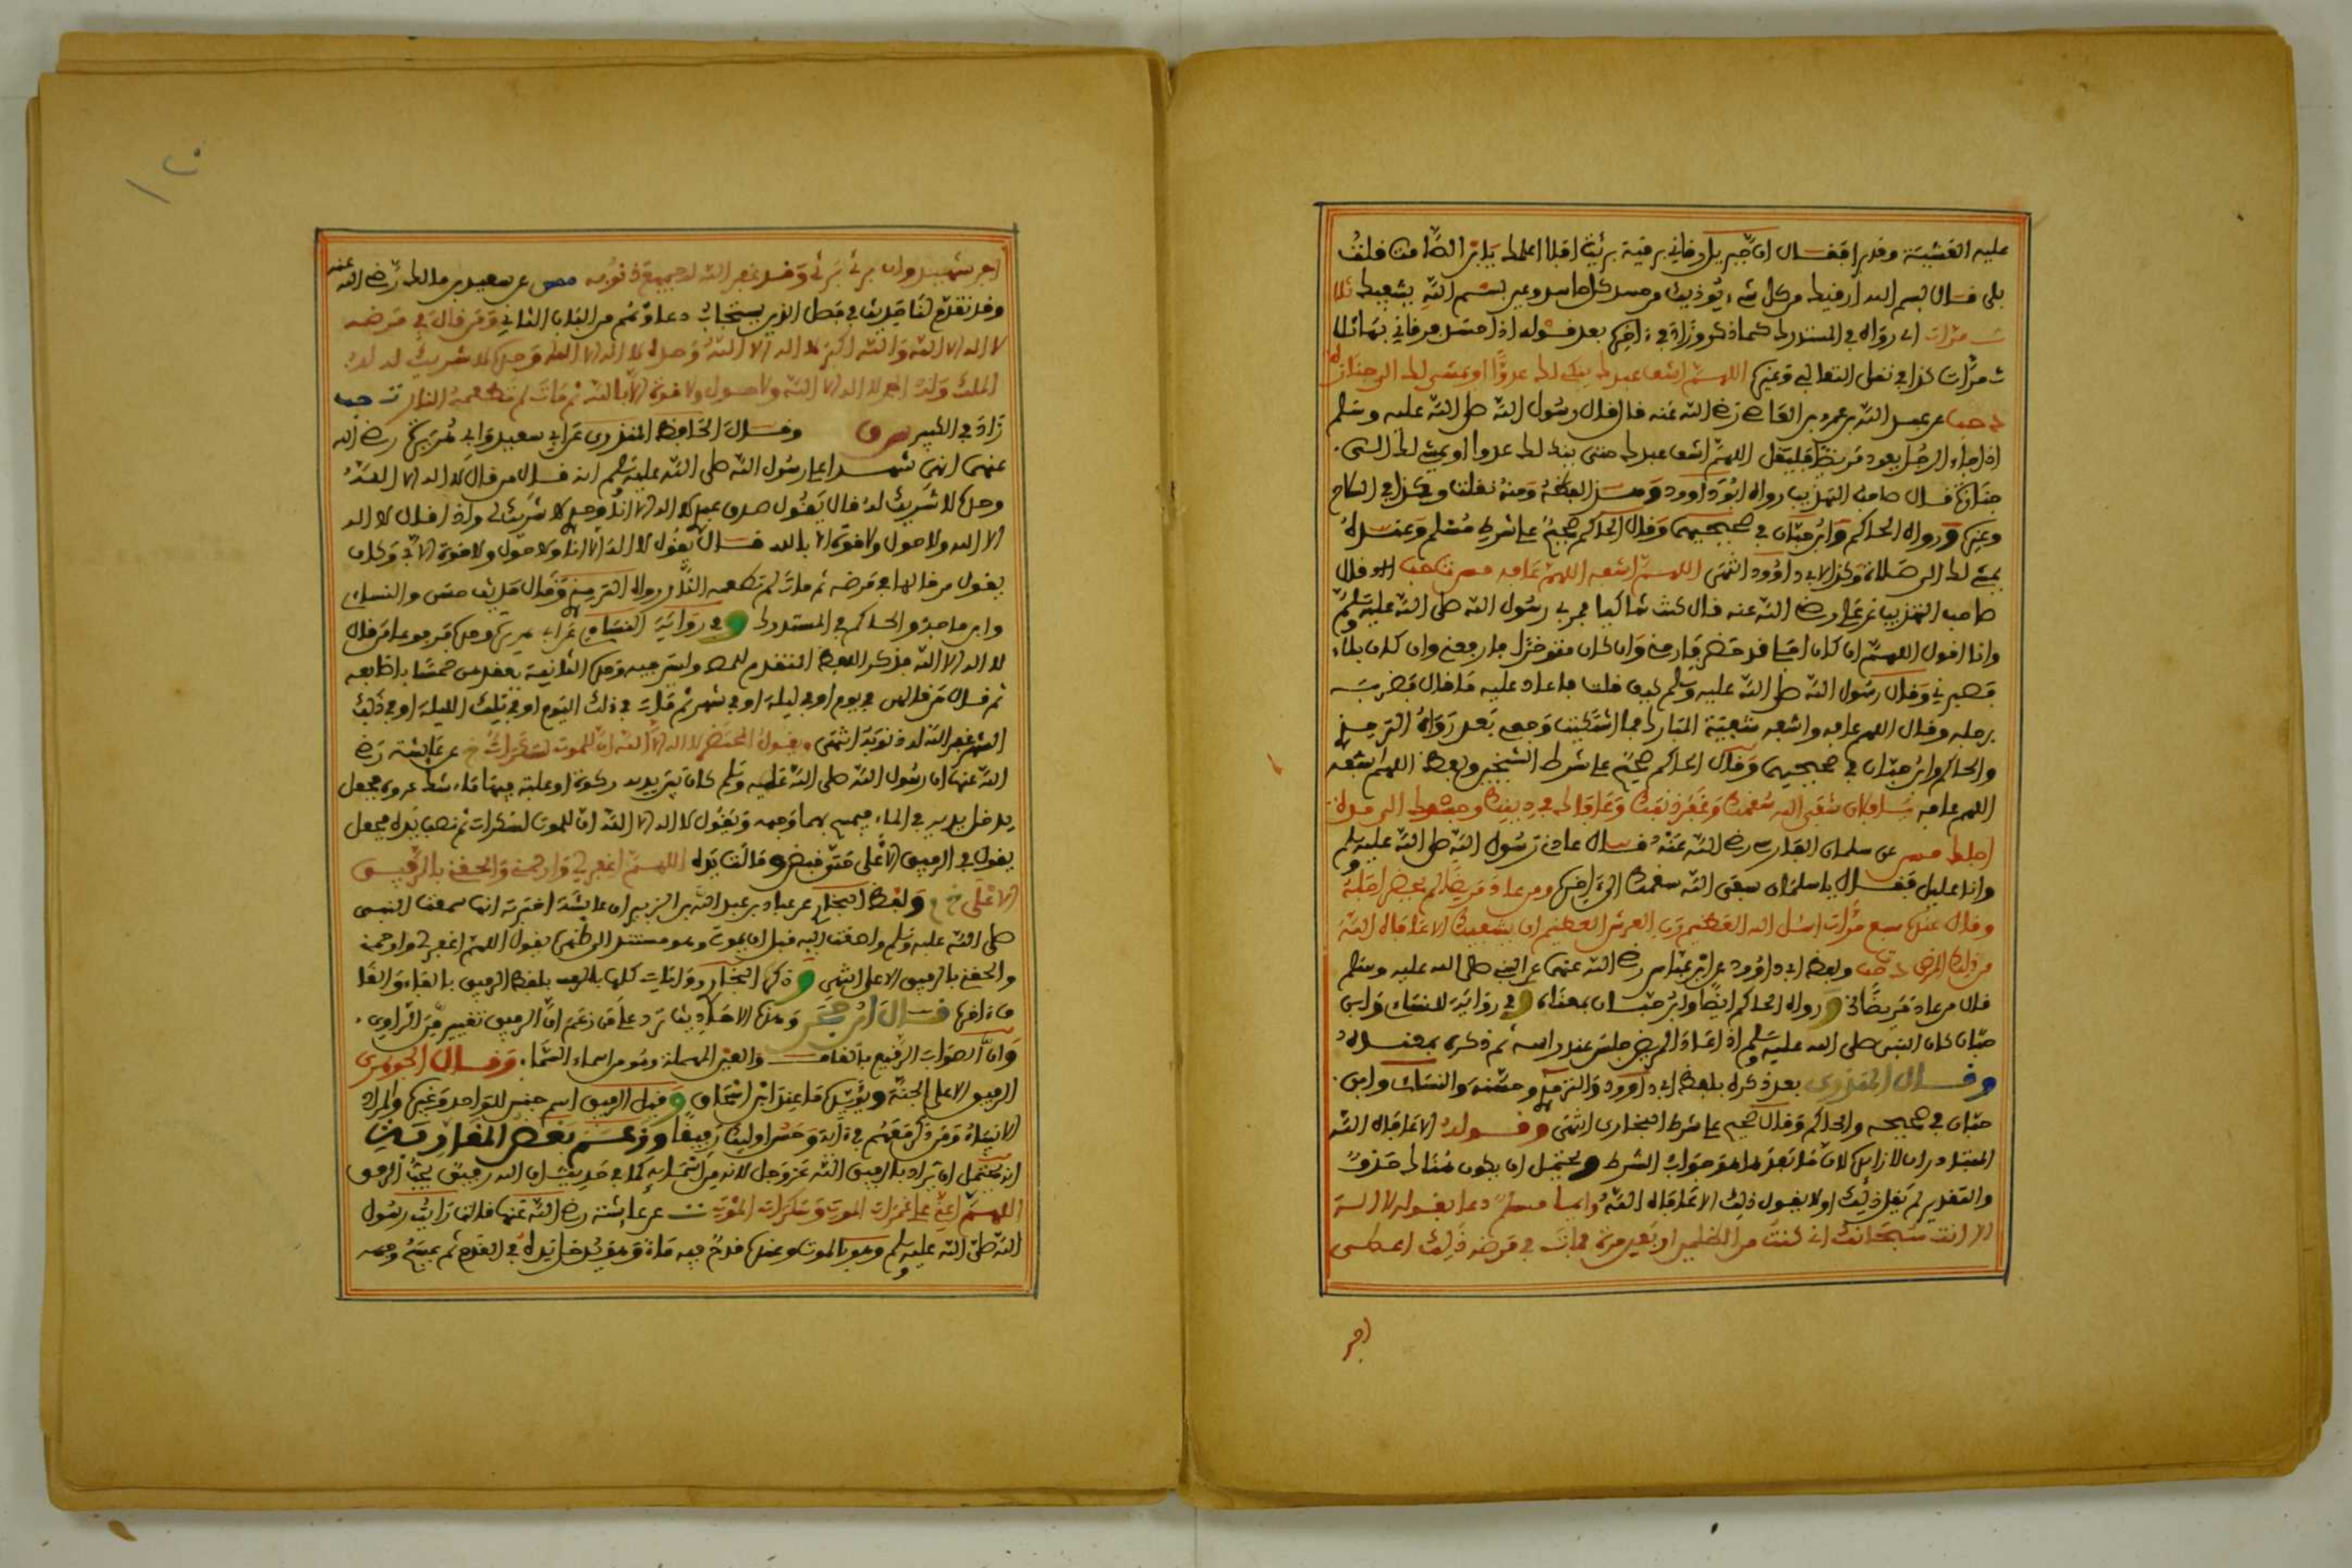 عليه العشية وقد برا فقال ان جبريل رقاني برقية برئت افلا اعلمك يابن الصامت قلت
بلى قال بسم الله ارقيك من كل شيء يوذيك من حسد كل حاسد وعين بسم الله يشفيك ثلا
ث مرات رواه في المستدرك كما ذكر وزاد في اخره بعد قوله اذا حسد فرقاني بها ثلا
ث مرات كذا في نقل الثعالبي وغيره اللهم اشف عبدك ينكى لك عدوا او يمشي لك الى جنازة
د حب عن عبد الله بن عمرو بن العاص رضي الله عنه قال قال رسول الله صلى الله عليه وسلم
اذا جاء الرجل يعود مريضا فليقل اللهم اشف عبدك ينكا لك عدوا او يمشي لك الى
جنازة قال صاحب التهذيب رواه ابو داوود وهذا لفظه ومنه نقلت وكذا في السلاح
وغيره ورواه الحاكم وابن حبان في صحيحيهما وقال الحاكم صحيح على شرط مسلم وعنده
يمشي لك الى صلاة وكذا لابي داوود انتهى اللهم اشفه اللهم عافه مص ت حب قال
صاحب التهذيب عن علي رضي الله عنه قال كنت شاكيا فمر بي رسول الله صلى الله عليه وسلم
وانا اقول اللهم ان كان اجلي قد حضر فارحني وان كان متوخرا فارفعني وان كان بلاء
فصبرني وقال رسول الله صلى الله عليه وسلم كيف قلت فاعاد عليه ما قال فضربه
برجله وقال اللهم عافه واشفه شعبة الشاك فما اشتكيت وجعي بعد رواه الترمذي
والحاكم وابن حبان في صحيحيهما وقال الحاكم صحيح على شرط الشيخين ولفظه اللهم اشفه
اللهم عافه يا سلمان شفى الله سقمك وغفر ذنبك وعافاك في دينك وجسمك الى مدة
اجلك مس عن سلمان الفارسي رضي الله عنه قال عادني رسول الله صلى الله عليه وسلم
وانا عليل فقال يا سلمان شفى الله سقمك الى اخره ومن عاد مريضا لم يحضر اجله
وقال عنده سبع مرات اسئل الله العظيم رب العرش العظيم ان يشفيك الا عافاه الله
من ذلك المرض د ت حب ولفظ ابي داوود عن ابن عباس رضي الله عنهما عن النبي صلى الله عليه وسلم
قال من عاد مريضا الخ ورواه الحاكم ايضا وابن حبان بمعناه وفي رواية للنساء وابن
حبان كان النبي صلى الله عليه وسلم اذا عاد المريض جلس عند راسه ثم ذكره بمعناه
وقال المنذري بعد ذكره بلفظ ابي داوود والترمذي وحسنه والنساء وابن
حبان في صحيحه والحاكم وقال صحيح على شرط البخاري انتهى وقوله الا عافاه الله
المتبادر ان الا زائدة لان ما بعدها هو جواب الشرط ويحتمل ان يكون هناك حذف
والتقدير لم يفعل ذلك او لا يقول ذلك الا عافاه الله وايما مسلم دعا بقوله لا اله
الا انت سبحانك اني كنت من الظلمين اربعين مرة فمات في مرضه ذلك اعطى
اجر
١٢٠
اجر شهيد وان برئ برئ وقد غفر الله له جميع ذنوبه مس عن سعد بن مالك رضي الله عنه
وقد تقدم لنا حديث في فصل الذين يستجاب دعاوهم من الباب الثاني ومن قال في مرضه
لا اله الا الله والله اكبر لا اله الا الله وحده لا اله الا الله وحده لا شريك له له
الملك وله الحمد لا اله الا الله ولا حول ولا قوة الا بالله ثم مات لم تطعمه النار ت حب
زاد في الكبير س ق وقال الحافظ المنذري عن ابي سعيد وابي هريرة رضي الله
عنهما انهما شهدا على رسول الله صلى الله عليه وسلم انه قال من قال لا اله الا الله
وحده لا شريك له قال يقول صدق عبدي لا اله الا انا وحدي لا شريك لي واذا قال لا اله
الا الله ولا حول ولا قوة الا بالله قال يقول لا اله الا انا ولا حول ولا قوة الا بي وكان
يقول من قالها في مرضه ثم مات لم تطعمه النار رواه الترمذي وقال حديث حسن والنساء
وابن ماجه والحاكم في المستدرك وفي رواية النساء عن ابي هريرة وحده مرفوعا من قال
لا اله الا الله فذكر اللفظ المتقدم للمص وليس فيه وحده الثانية يعقدهن خمسا باظابعه
ثم قال من قالهن في يوم او في ليلة او في شهر ثم مات في ذلك اليوم او في تلك الليلة او في ذلك
الشهر غفر الله له ذنوبه انتهى ويقول المحتضر لا اله الا الله ان للموت لسكرات خ عن عايشة رضي
الله عنها ان رسول الله صلى الله عليه وسلم كان بين يديه ركوة او علبة فيها ماء شك عمرو فجعل
يدخل يديه في الماء فيمسح بهما وجهه ويقول لا اله الا الله ان للموت لسكرات ثم نصب يده فجعل
يقول في الرفيق الاعلى حتى قبض ومالت يده اللهم اغفر لي وارحمني والحقني بالرفيق
الاعلى خ م ولفظ البخاري عن عباد بن عبد الله بن الزبير ان عايشة اخبرته انها سمعت النبي
صلى الله عليه وسلم واصغت اليه قبل ان يموت وهو مستند الى ظهره يقول اللهم اغفر لي وارحمني
والحقني بالرفيق الاعلى انتهى وذكر البخاري روايات كلها بلفظ الرفيق بالفاء والقا
ف اخرها قال ابن حجر وهذه الاحاديث ترد على من زعم ان الرفيق تغيير من الراوي
وان الصواب الرقيع بالقاف والعين المهملة وهو من اسماء السماء وقال الجوهري
الرفيق الاعلى الجنة ويؤيده ما عند ابن اسحاق وقيل الرفيق اسم جنس للواحد وغيره والمراد
الانبياء ومن ذكر معهم في اية وحسن اوليك رفيقا وزعم بعض المغاربة
انه يحتمل ان يراد بالرفيق الله عز وجل لانه من اسمايه كما في حديث ان الله رفيق يحب الرفق
اللهم اعني على غمرات الموت وسكرات الموت ت عن عايشة رضي الله عنها قالت رايت رسول
الله صلى الله عليه وسلم وهو بالموت وعنده قدح فيه ماء وهو يدخل يده في القدح ثم يمسح وجهه